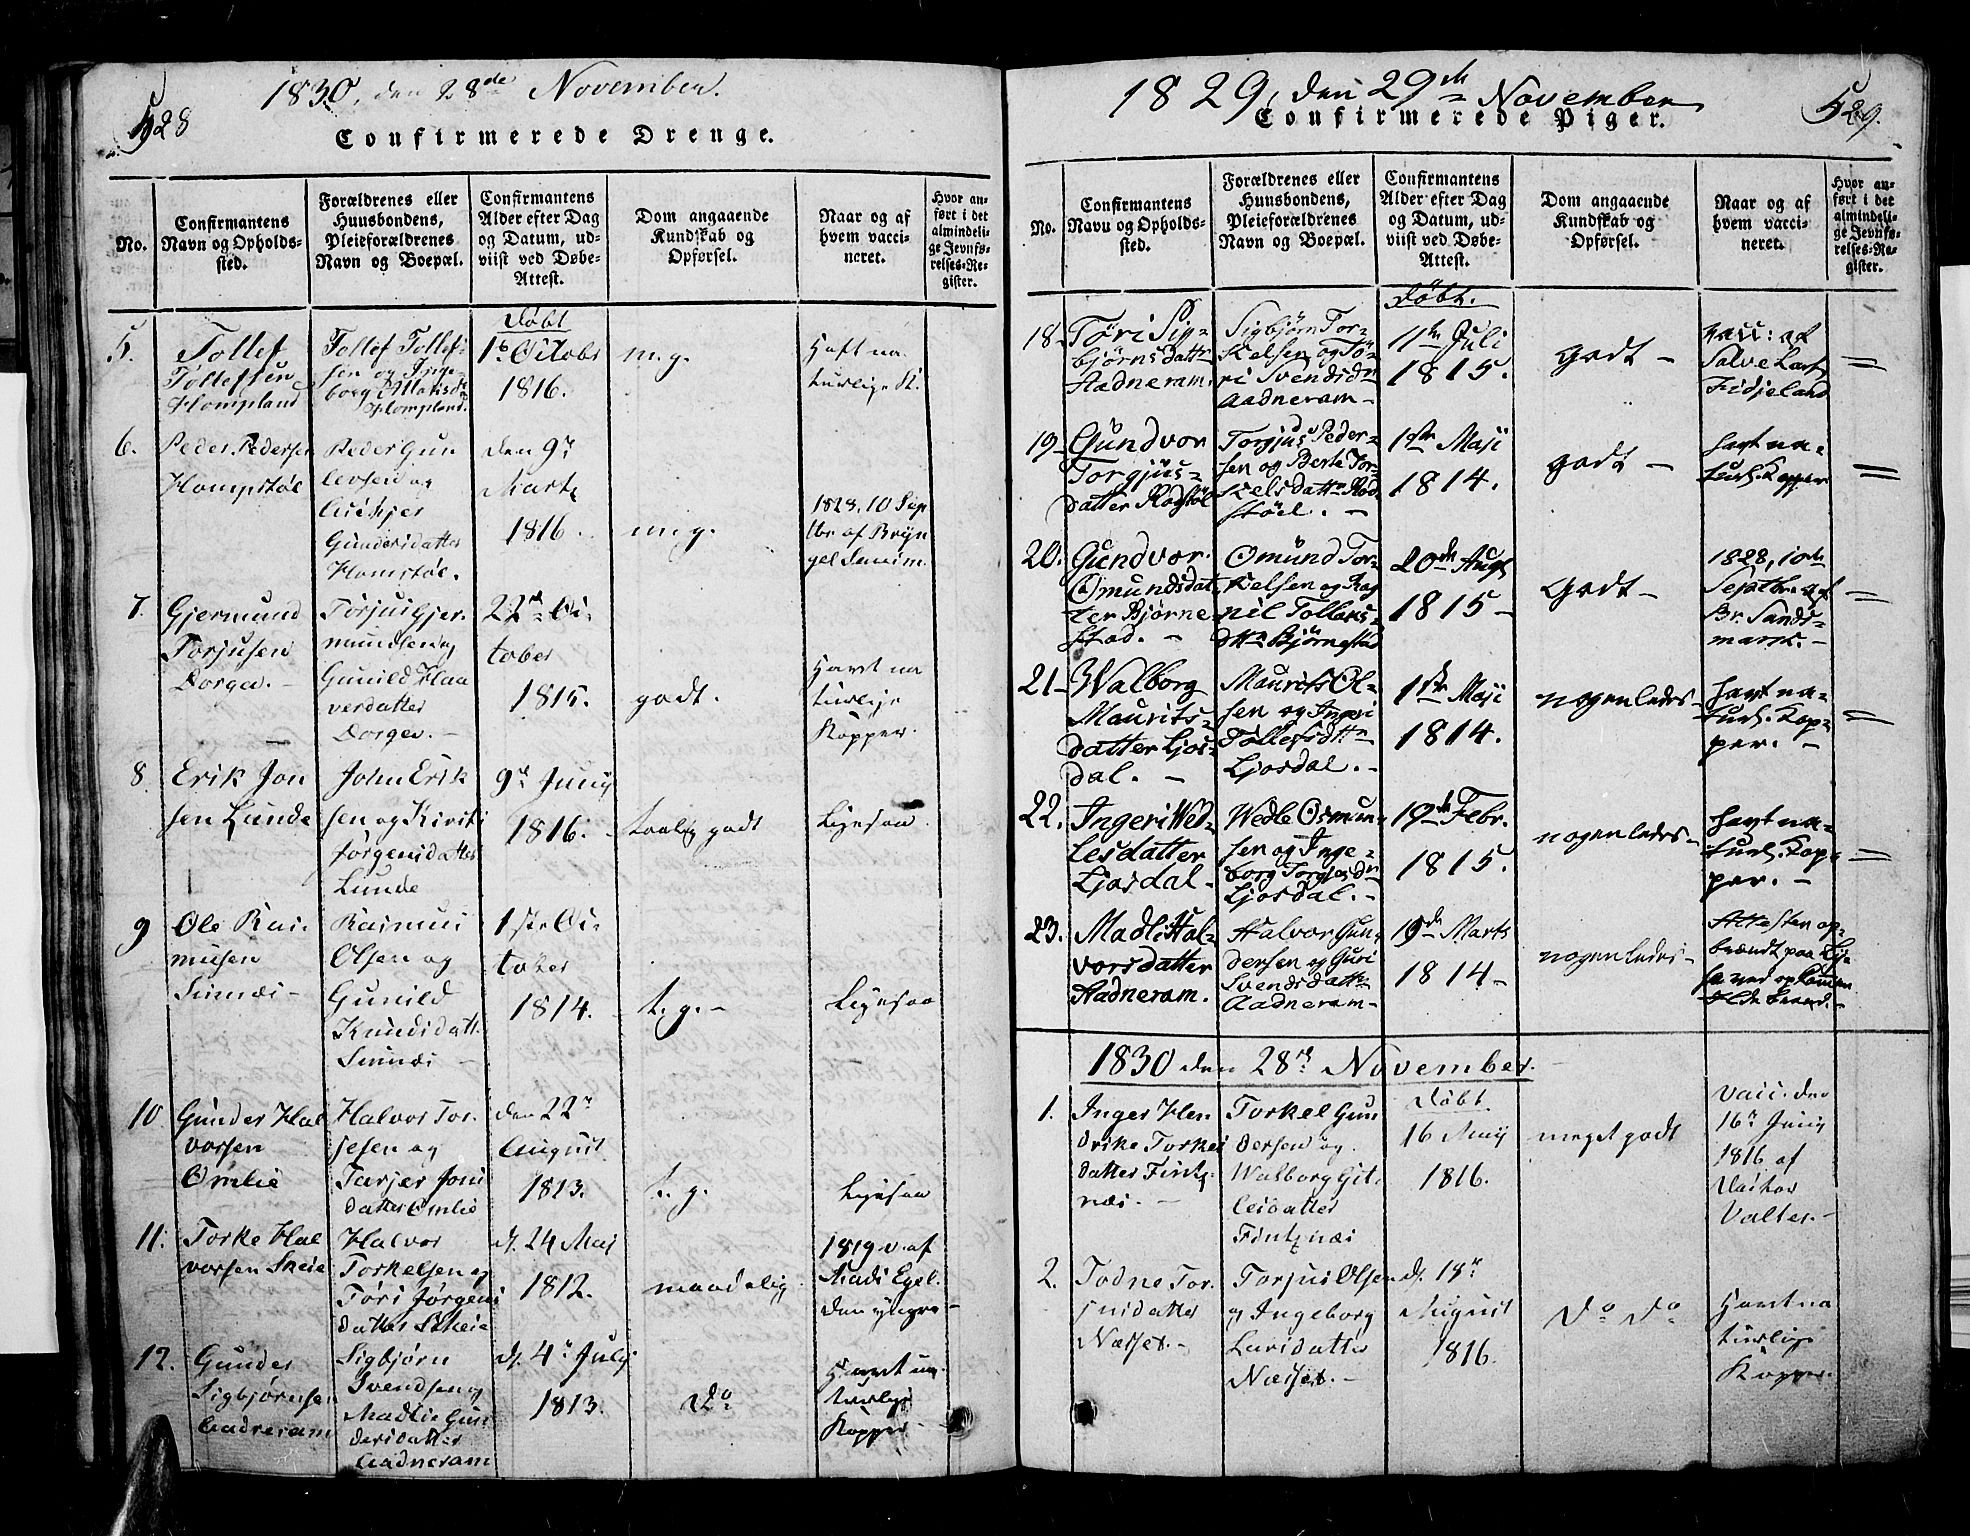 528
1830, den 28de November.
Confirmerede Drenge.
No.
Confirmantens
Navn og Opholds-
sted.
Forældrenes eller
Huusbondens,
Pleieforældrenes
Navn og Boepæl.
Confirmantens
Alder efter Dag
og Datum, ud-
viist ved Døbe-
Attest.
Dom angaaende
Kundskab og
Opførsel.
Naar og af
hvem vacci-
neret.
Hvor an-
ført i det
almindeli-
ge Jevnfø-
relses-Re-
gister.
Døbt
5.
Tollef
Tollefsen
Hompland
Tollef Tollef-
sen og Inge-
borg
Hompland.
16 Octobr
1816.
m.g.
Haft na
turlige K.
6.
Peder Pedersen
Hompstøl
Peder Gun
levsen og
Gundersdatter
Homstøl.
den 9de
Marts
1816.
m.g.
1828, 10 Sep
tbr af Bryn
gel
7.
Gjermund
Torjusen
Dorgev. -
Torjus Gjer
mundsen og
Gunild Haa
verdatter
Dorgev. -
22de Oc-
tober
1815.
godt.
Havt na
turlige
Kopper.
8.
Erik Jon
sen Lunde
John Erik
sen og Kirsti
Jørgensdatter
Lunde
9de Juny
1816.
taalig godt
Ligesaa
9
Ole Ras-
musen
Sinnes -
Rasmus
Olsen og
Gunild
Knudsdatt.
Sinnes -
1ste Oc-
tober
1814.
t. g. -
Ligesaa
10
Gunder Hal
vorsen
Omlie
Halvor Tor-
jesen og
Tarjer Jons
datter Omlie
den 22de
August
1813.
t. g.
Ligesaa
11.
Torke Hal
vorsen Skeie
Halvor
Torkelsen og
Tori Jørgens
datter Skeie
d. 24 Maj
1812.
maadelig
1819 v. af
Mads Egel.
den yngre -
12.
Gunder
Sigbjørnsen
Aadneram
Sigbjørn
Svendsen og
Madlie Gun
dersdatter
Aadneram
d. 4de July
1813.
Do
Havt na
turlige
Kopper
1829, den 29de November
Confirmerede Piger.
529.
No.
Confirmantens
Navn og Opholds-
sted.
Forældrenes eller
Huusbondens,
Pleieforældrenes
Navn og Boepæl.
Confirmantens
Alder efter Dag
og Datum, ud-
viist ved Døbe-
Attest.
Dom angaaende
Kundskab og
Opførsel.
Naar og af
hvem vacci-
neret.
Hvor an-
ført i det
almindeli-
ge Jevnfø-
relses-Re-
gister.
Døbt.
18-
Töri Sig-
bjørnsdattr
Aadneram.
Sigbjørn Tor-
kelsen og Tö-
ri Svendsdtr
Aadneram -
11te Juli
1815.
godt -
vacc: af
Salve Lars
Fidjeland
=
19-
Gundvor
Torgjus-
datter Rødstöl
Torgjus Peder-
sen og Berte Tor-
kelsdattr Rød-
stöel. -
1ste Maji
1814.
godt -
havt na-
turl. Kopper
=
20.
Gundvor
Omundsdat-
ter Bjørne
stad. -
Omund Tor-
kelsen og Rag
nil Tollefs-
dtr Bjørnestad
20de Augt
1815 -
Godt -
1828, 10de
Septbr. af
Br. Sands-
mark. -
=
21-
Walborg
Maurits-
datter Ljos-
dal. -
Maurits Ol-
sen og Ingeri
Tollefsdttr
Ljosdal. -
1ste Maji
1814.
nogenledes -
havt na-
turl. Kop-
per. -
=
22.
Ingeri Wed-
lesdatter
Ljosdal -
Wedle Osmun-
sen og Inge-
borg Torgjusdtr
Ljosdal. -
19de Febr.
1815.
nogenledes -
havt na-
turl. Kop-
per. -
=
23.
Madli Hal-
vorsdatter
Aadneram.
Halvor Gun-
dersen og Guri
Svendsdattr
Aadneram -
19de Marts
1814 -
nogenledes -
Attesten op-
brændt paa
1830 den 28de November. -
1.
Inger Hen
drike Torkels
datter Fintz-
næs. -
Torkel Gun
dersen og
Walborg Git-
lesdatter
Fintznæs
Døbt.
16 Maij
1816.
meget godt
Vacc. den
16de Juny
1816 af
Doctor
Valter. -
2.
Todne Tor-
jusdatter
Næsset. -
Torjus Olsen
og Ingeborg
Larsdatter
Næsset. -
d. 18de
August
1816.
Do Do
Havt na
turlige
Kopper.